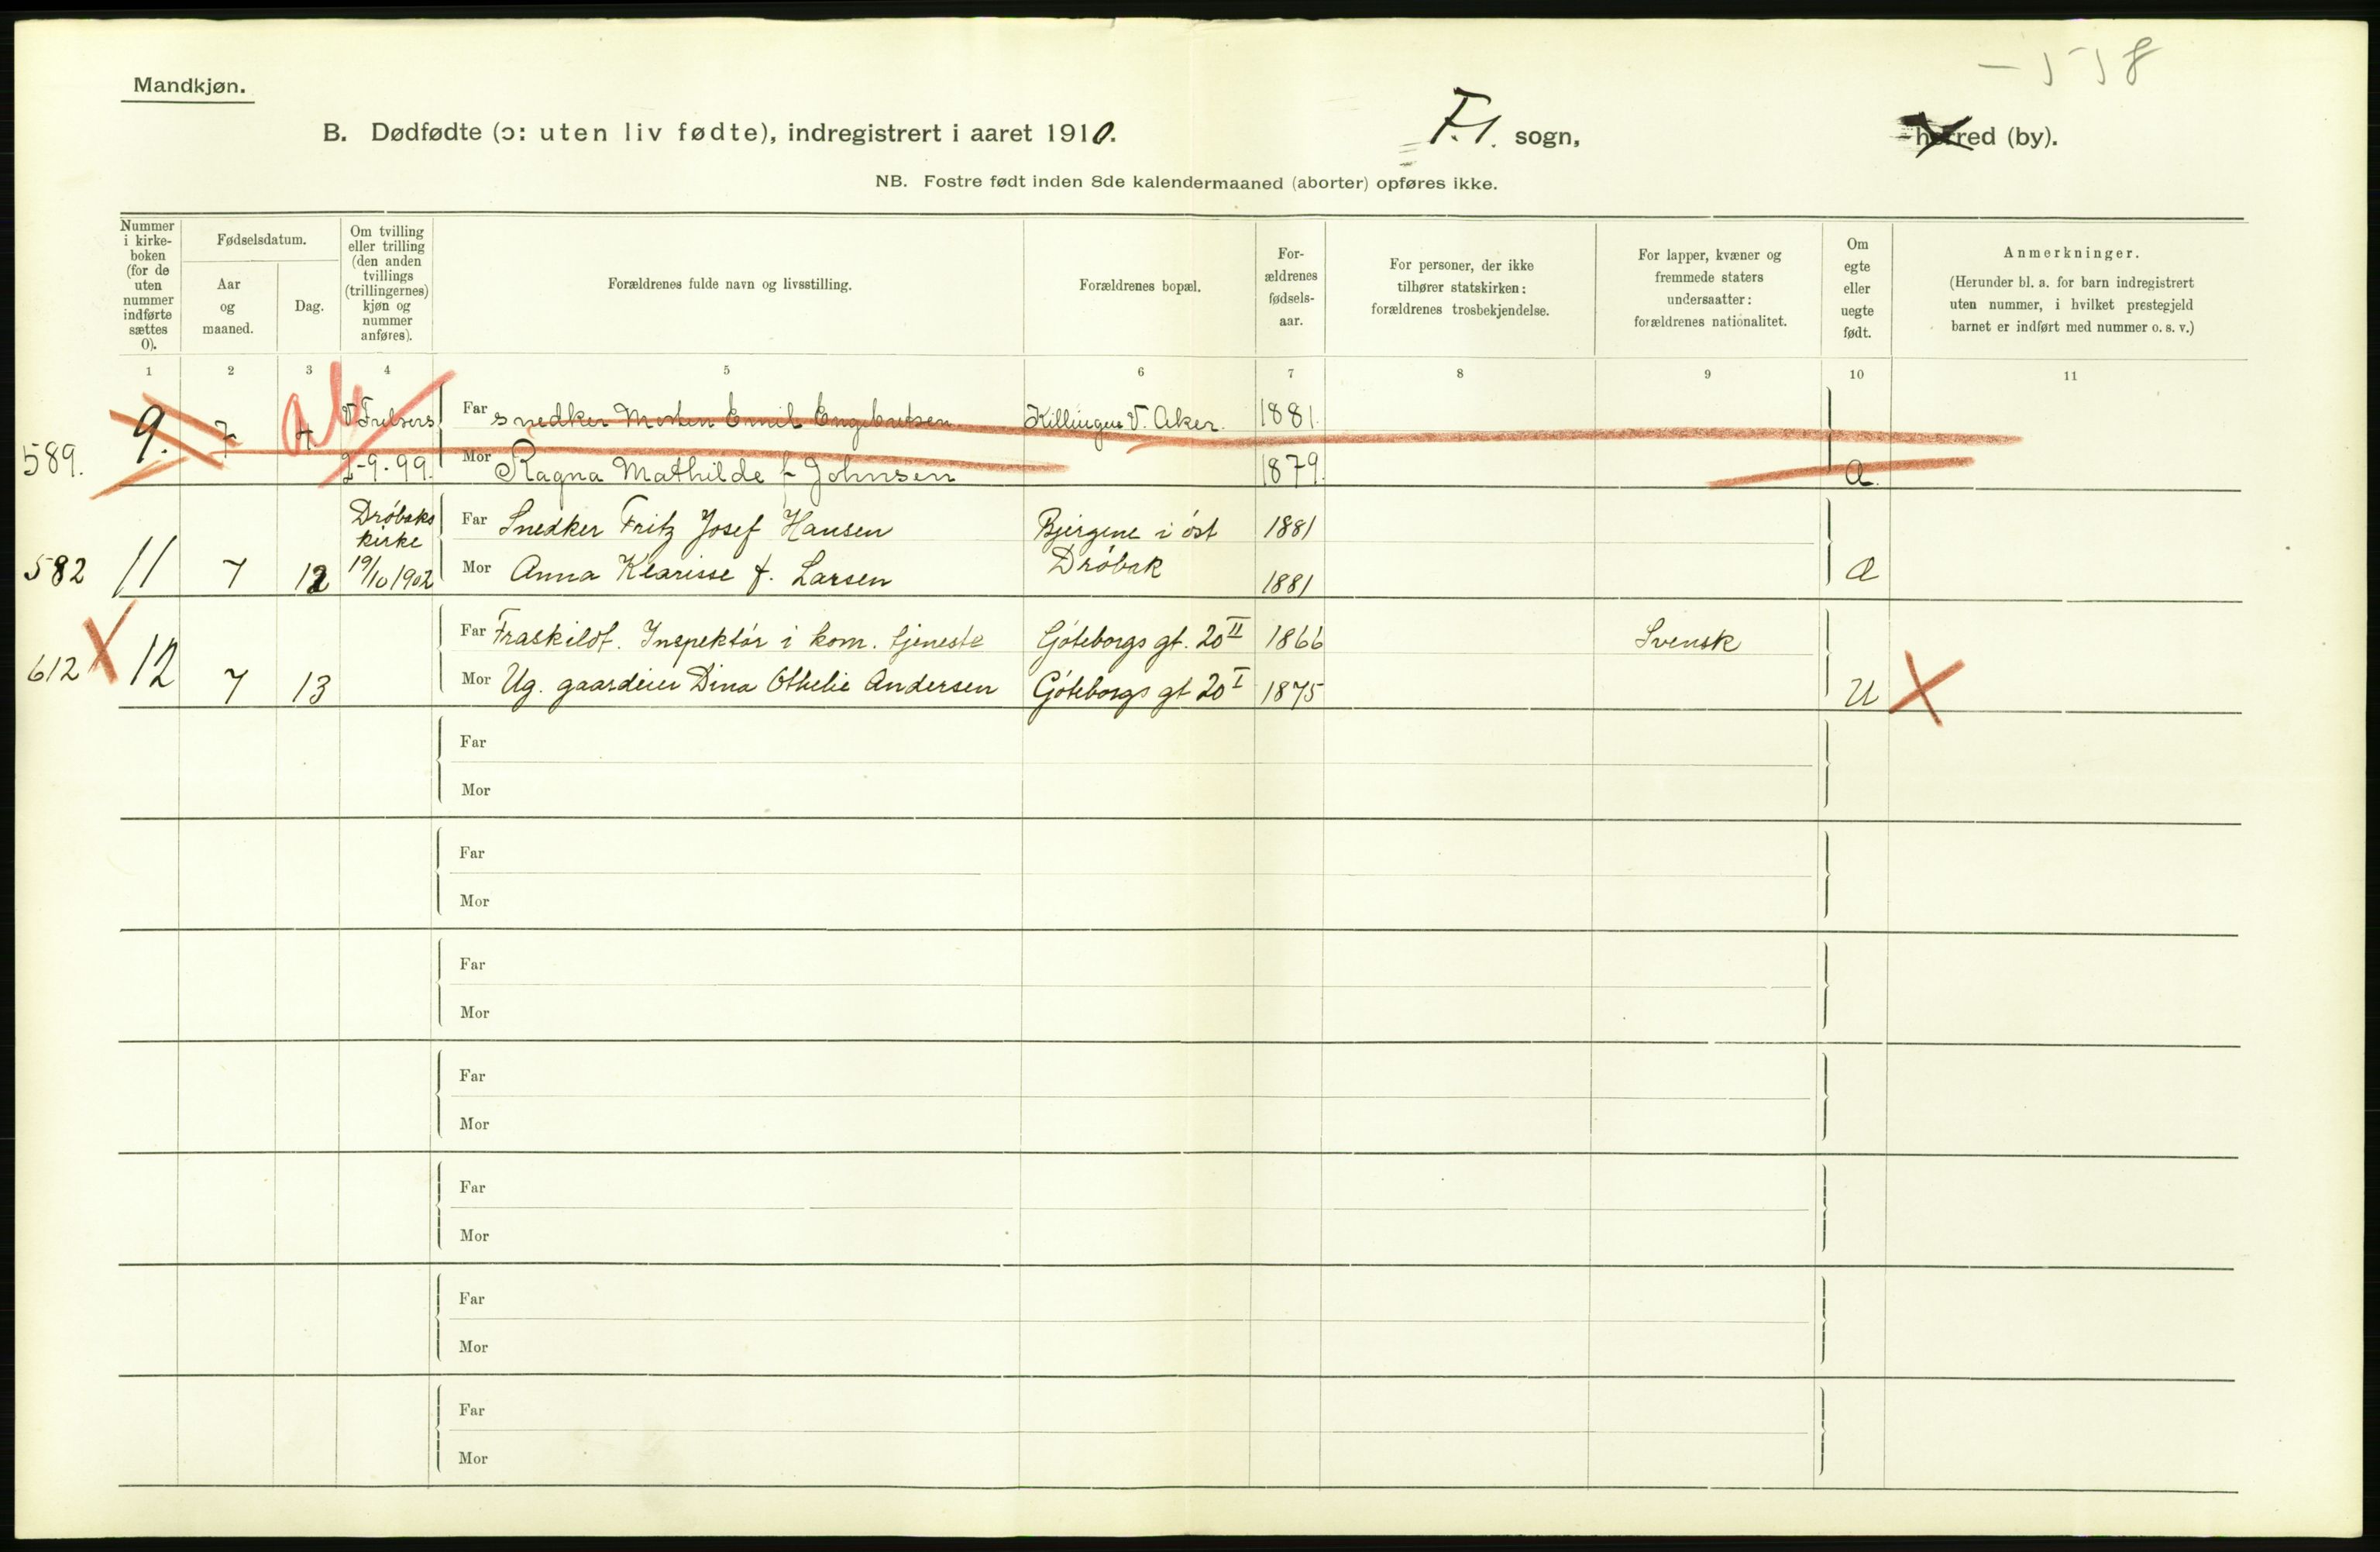 Mandkjøn.
B. Dødfødte (ɔ: uten liv fødte), indregistrert i aaret 1910.
F.1. sogn,
herred (by).
NB. Fostre født inden 8de kalendermaaned (aborter) opføres ikke.
Nummer i kirke-boken (for de uten nummer indførte sættes 0).
Fødselsdatum.
Aar og maaned.
Dag.
Om tvilling eller trilling (den anden tvillings (trillingernes) kjøn og nummer anføres).
Forældrenes fulde navn og livsstilling.
Forældrenes bopæl.
For-ældrenes fødsels-aar.
For personer, der ikke tilhører statskirken: forældrenes trosbekjendelse.
For lapper, kvæner og fremmede staters undersaatter: forældrenes nationalitet.
Om egte eller uegte født.
Anmerkninger.
(Herunder bl. a. for barn indregistrert uten nummer, i hvilket prestegjeld barnet er indført med nummer o. s. v.)
1 2 3 4 5 6 7 8 9 10 11
589. 9. 7 4 V. Frelsers 2-9-99.
Far snedker Morten Emil Engebretsen V. Aker. 1881.
Mor Ragna Mathilde f. Johnsen 1879. Æ.
582 11 7 12 Drøbaks kirke 19/10 1902
Far Snedker Fritz Josef Hansen Bjergene i øst 1881
Mor Anna Klarisse f. Larsen Drøbak 1881 Æ
612 12 7 13
Far Fraskildt. Inspektør i kom. tjeneste Göteborgs gt. 20 II 1866 Svensk
Mor Ug. gaardeier Dina Othelie Andersen Göteborgs gt 20 I 1875 U
Far
Mor
Far
Mor
Far
Mor
Far
Mor
Far
Mor
Far
Mor
Far
Mor